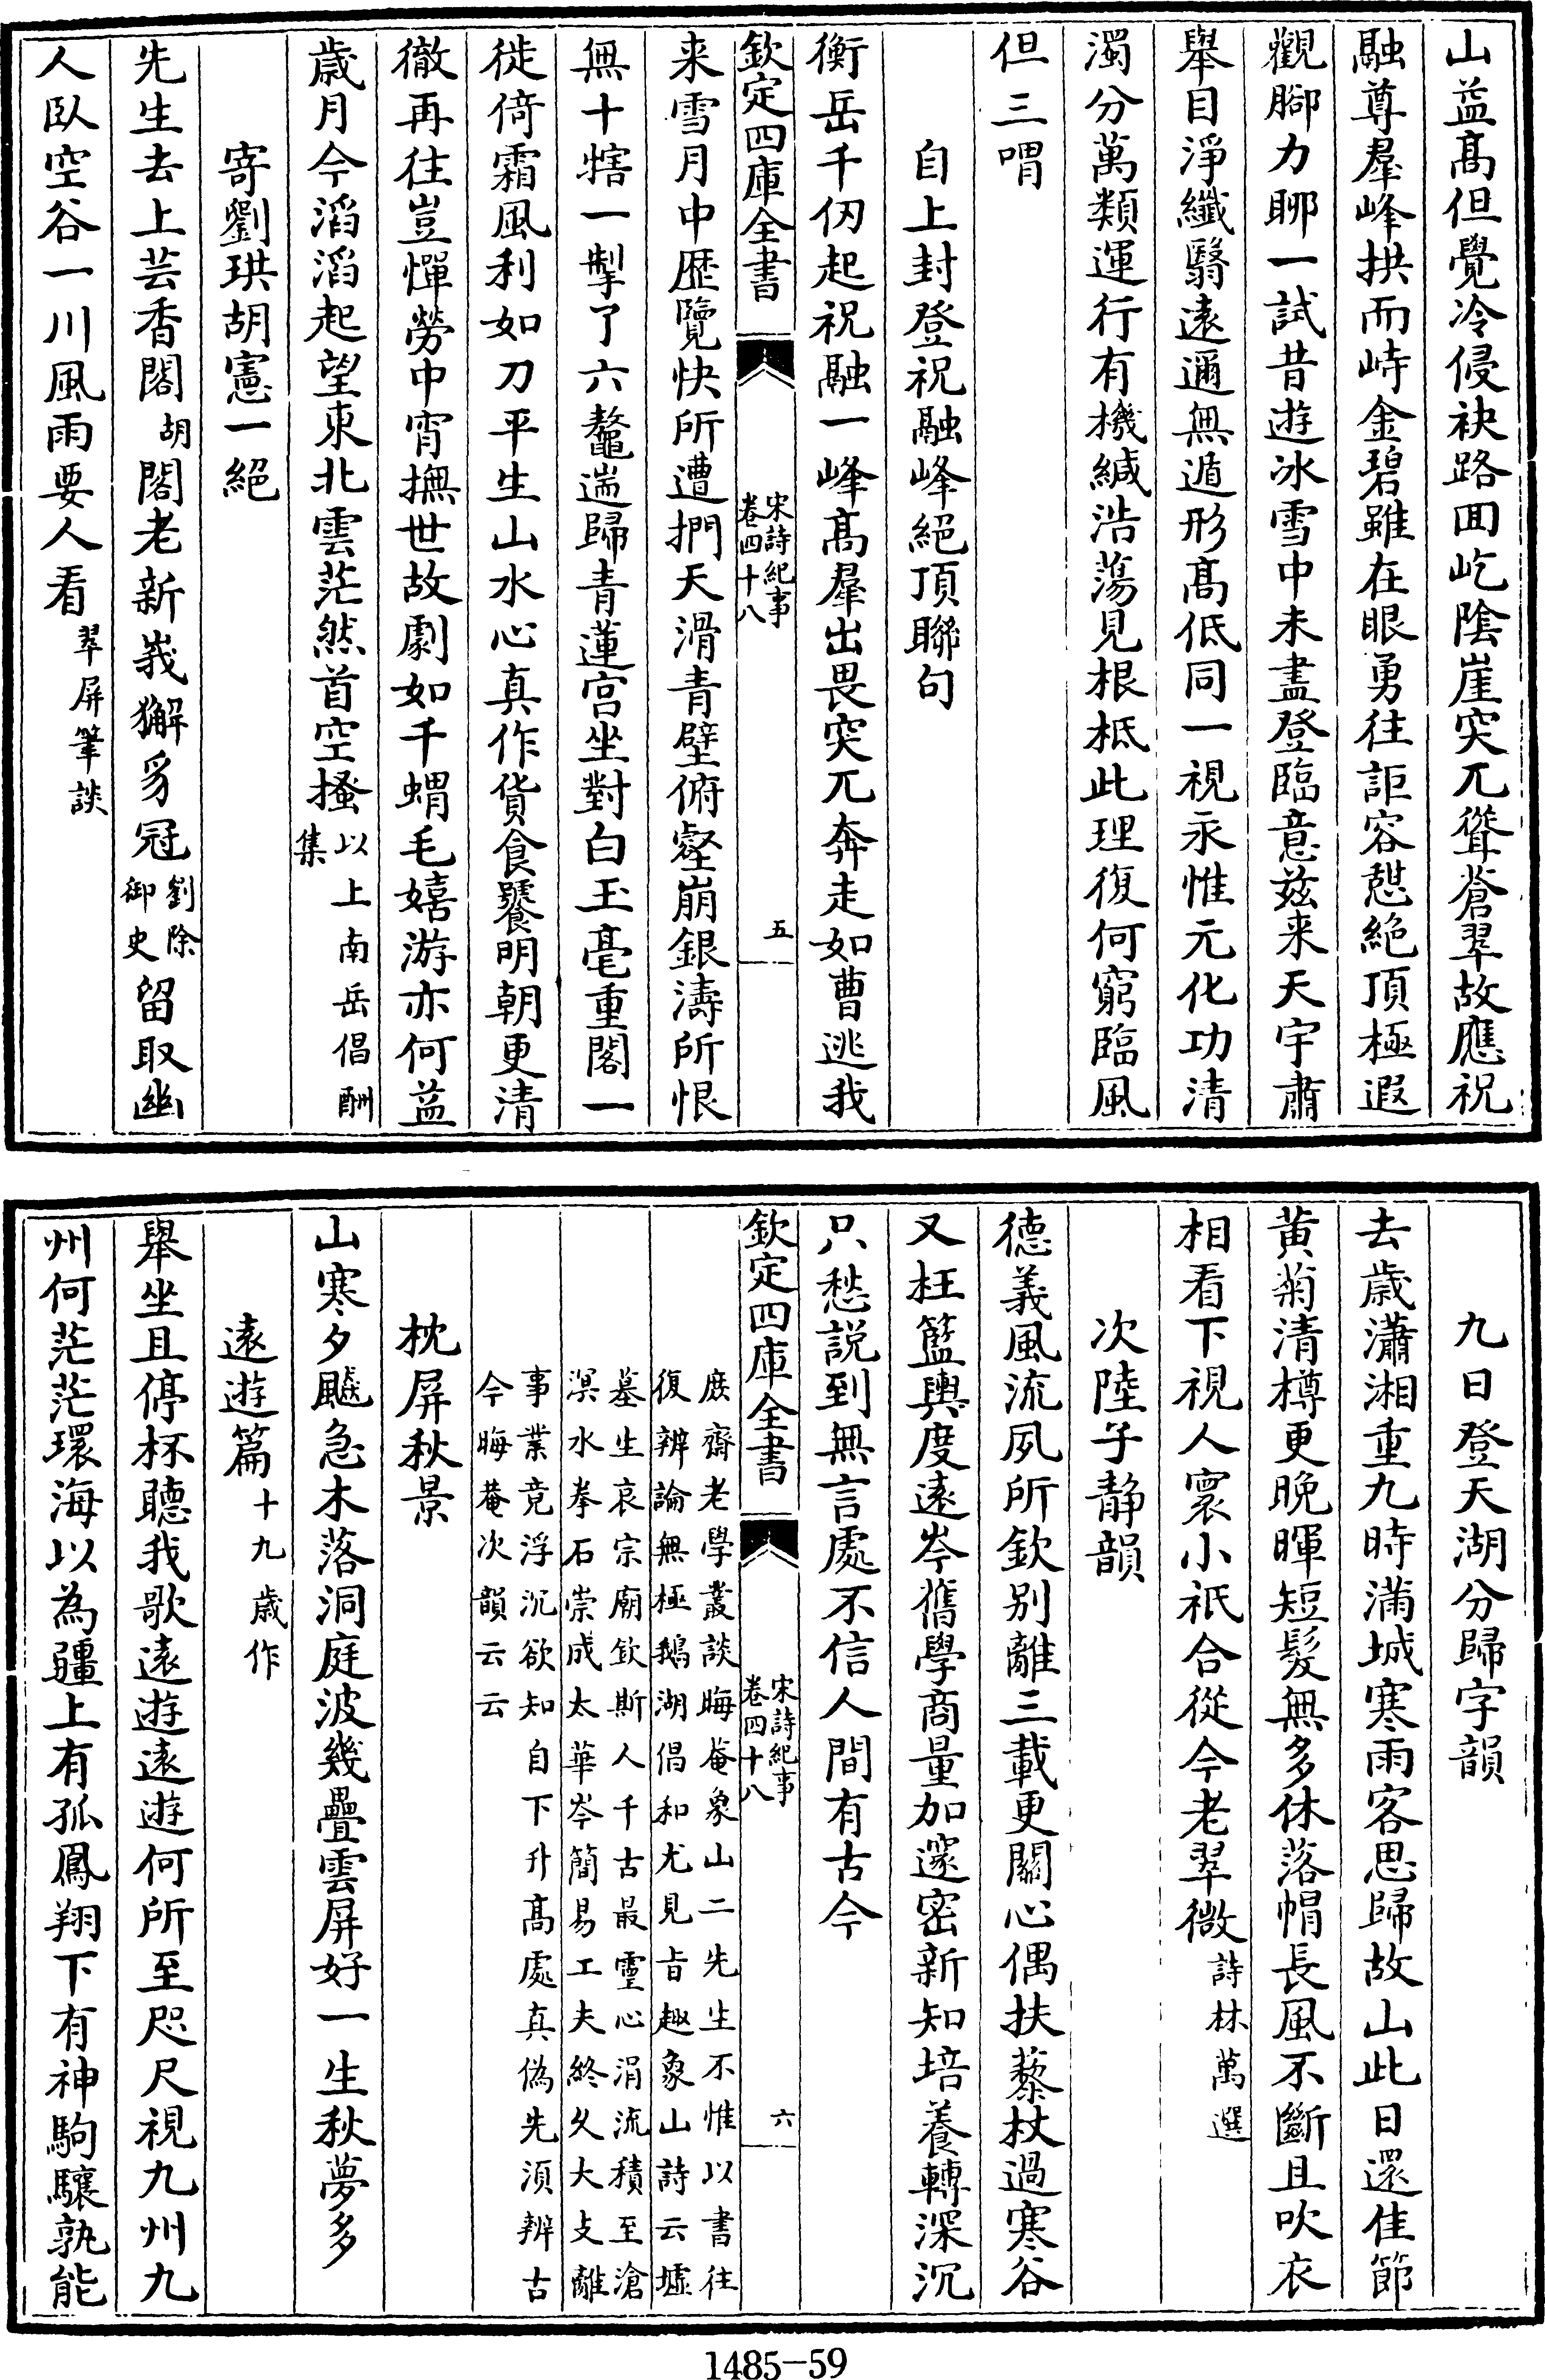 山益髙但覺冷侵袂路囬屹隂崖突兀聳蒼翠故應祝
融尊羣峰拱而峙金碧雖在眼勇往詎容憇絶頂極遐
觀腳力聊一試昔遊冰雪中未盡登臨意兹来天宇肅
舉目淨纖翳逺邇無遁形髙低同一視永惟元化功清
濁分萬類運行有機緘浩蕩見根柢此理復何窮臨風
但三喟
自上封登祝融峰絶頂聯句
衡岳千仞起祝融一峰髙羣出畏突兀奔走如曹逃我
欽定四庫全書
宋詩紀事
卷四十八
五
来雪月中歴覽快所遭捫天滑青壁俯壑崩銀濤所恨
無十犗一掣了六鼇遄歸青蓮宫坐對白玉毫重閣一
徙倚霜風利如刀平生山水心真作貨食饕明朝更清
徹再往豈憚勞中宵撫世故劇如千蝟毛嬉游亦何益
歳月今滔滔起望東北雲茫然首空搔以上南岳倡酬
集
寄劉珙胡憲一絶
先生去上芸香閣胡閣老新峩獬豸冠劉除
御史留取幽
人臥空谷一川風雨要人看翠屏筆談
九日登天湖分歸字韻
去歳瀟湘重九時滿城寒雨客思歸故山此日還佳節
黄菊清樽更晚暉短髮無多休落帽長風不斷且吹衣
相看下視人寰小祇合從今老翠微詩林萬選
次陸子静韻
德義風流夙所欽别離三載更關心偶扶藜杖過寒谷
又枉籃輿度逺岑舊學商量加邃密新知培養轉深沉
只愁説到無言處不信人間有古今
欽定四庫全書
宋詩紀事
卷四十八
六
庻齋老學叢談晦菴象山二先生不惟以書往
復辨論無極鵝湖倡和尤見旨趣象山詩云墟
墓生哀宗廟欽斯人千古最靈心涓流積至滄
溟水拳石崇成太華岑簡易工夫終乆大支離
事業竟浮沉欲知自下升髙處真偽先須辨古
今晦菴次韻云云
枕屏秋景
山寒夕飈急木落洞庭波幾疊雲屏好一生秋夢多
逺遊篇十九歳作
舉坐且停杯聽我歌逺遊逺遊何所至咫尺視九州九
州何茫茫環海以為疆上有孤鳳翔下有神駒驤孰能
1485-59